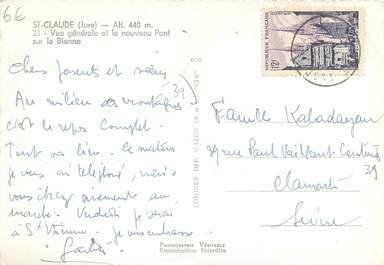 6€
ST-CLAUDE (Jura) — Alt. 440 m.
22 - Vue générale et le nouveau Pont
sur la Bienne
Chers parents et sœur
Au milieu des montagnes
c'est le repos complet.
Tout va bien. Ce matin
je vous ai téléphoné, mais
vous étiez au
marché. Vendredi je serai
à St Etienne. Je vous embrasse
COMBIER IMP. MACON
RÉPUBLIQUE FRANÇAISE
12F
Famille Kaladayan
39 rue Paul Vaillant Couturier
Clamart
Seine
39
39
Photographie Véritable
Reproduction Interdite